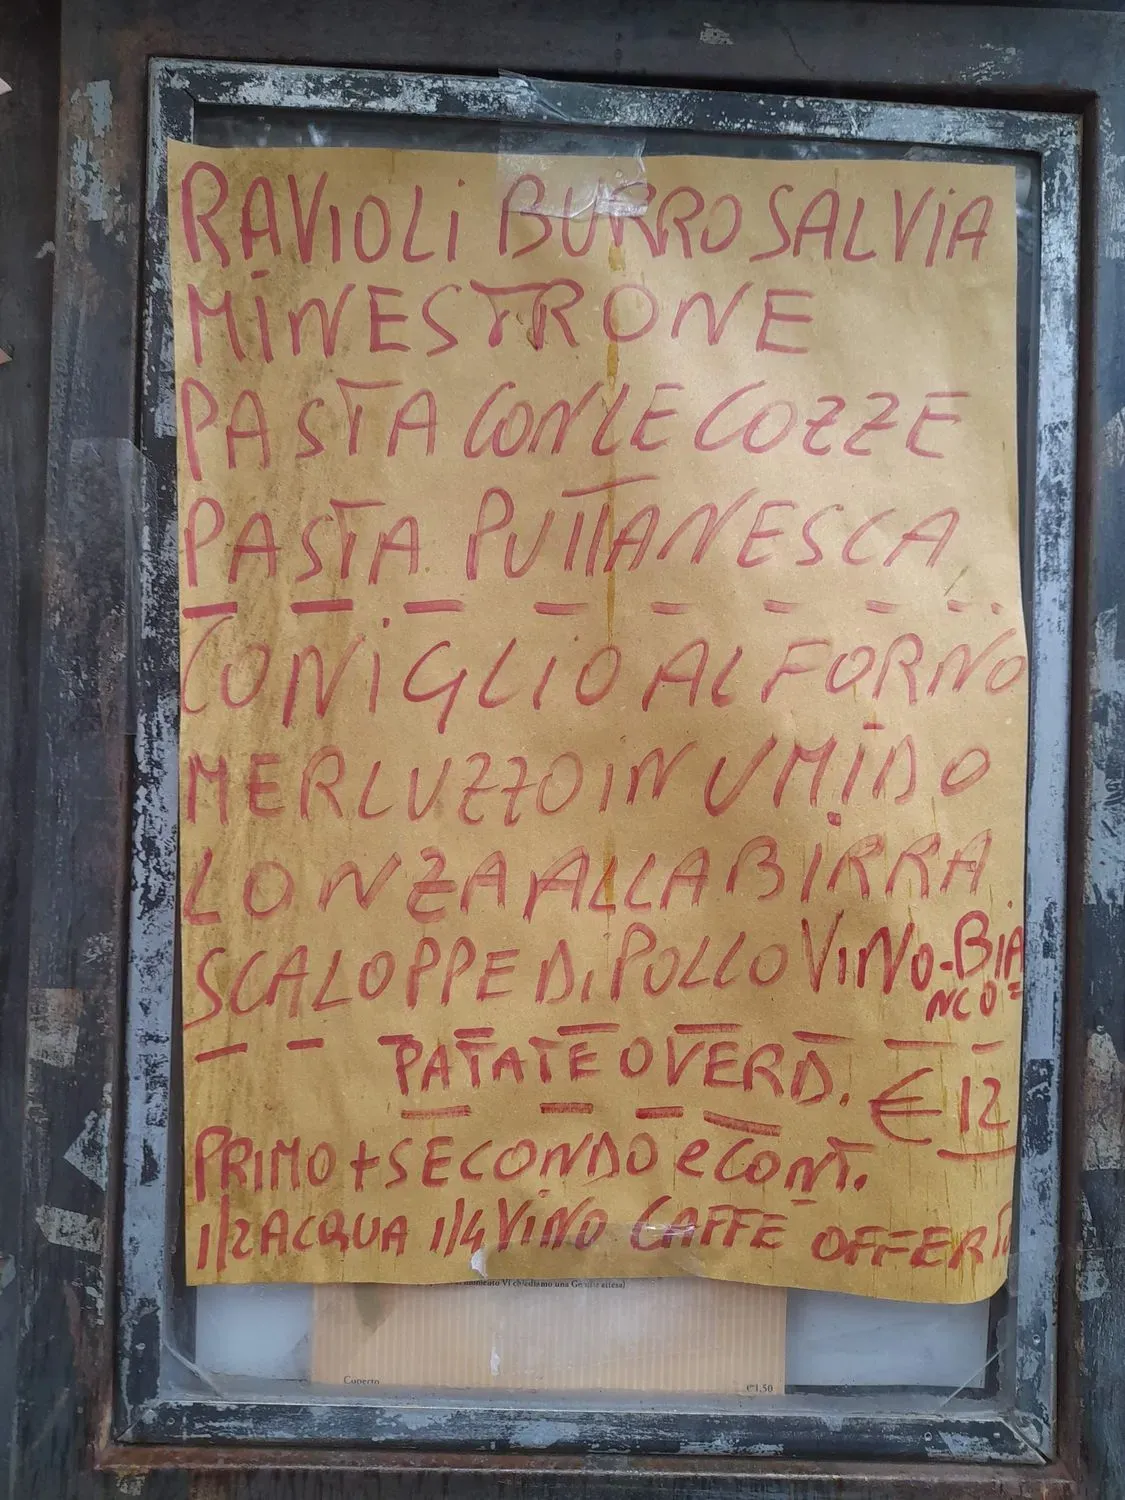 RAVIOLI BURRO SALVIA
MINESTRONE
PASTA CON LE COZZE
PASTA PUTTANESCA
CONIGLIO AL FORNO
MERLUZZO IN UMIDO
LONZA ALLA BIRRA
SCALOPPE DI POLLO VINO-BIA
NCO=
PATATE O VERD. € 12
PRIMO + SECONDO e CONT.
1/2 ACQUA 1/4 VINO CAFFE OFFERTA
momento Vi chiediamo una Gentile attesa)
Coperto €1,50